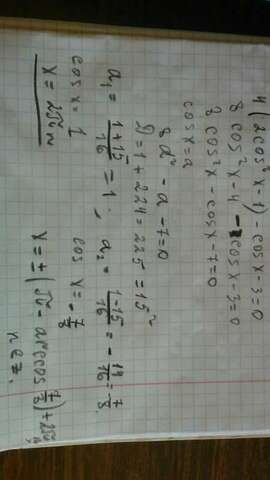 4(2cos²x-1)-cosx-3=0
8cos²x-4-cosx-3=0
8cos²x-cosx-7=0
cosx=a
8a²-a-7=0
D=1+224=225=15²
a₁=(1+15)/16=1, a₂=(1-15)/16=-14/16=-7/8.
cosx=1 cosx=-7/8
x=2πn x=±(π-arccos 7/8)+2πn
n∈z.